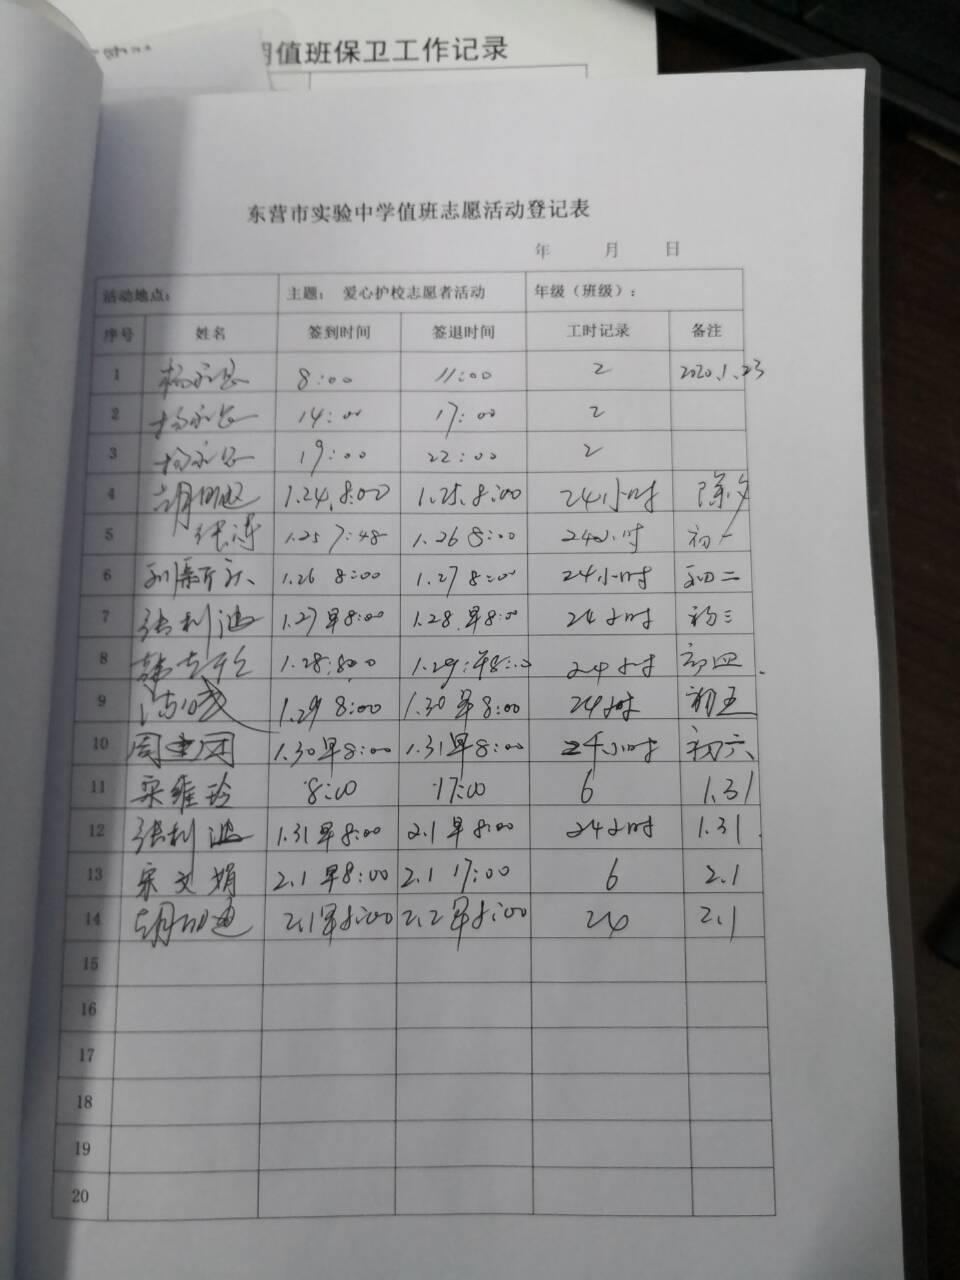 期值班保卫工作记录
东营市实验中学值班志愿活动登记表
年 月 日
活动地点： 主题： 爱心护校志愿者活动 年级（班级）：
序号 姓名 签到时间 签退时间 工时记录 备注
1 8:00 11:00 2 2020.1.23
2 14:00 17:00 2
3 19:00 22:00 2
4 1.24.8:00 1.25.8:00 24小时 除夕
5 张涛 1.25 7:48 1.26 8:00 24小时 初一
6 1.26 8:00 1.27 8:00 24小时 初二
7 张利 1.27早8:00 1.28.早8:00 24小时 初三
8 1.28:8:00 1.29:早8:00 24小时 初四
9 1.29 8:00 1.30 早8:00 24小时 初五
10 周建 1.30早8:00 1.31早8:00 24小时 初六
11 宋维玲 8:00 17:00 6 1.31
12 张利 1.31早8:00 2.1早8:00 24小时 1.31.
13 宋文娟 2.1 早8:00 2.1 17:00 6 2.1
14 2.1早8:00 2.2早8:00 24 2.1
15
16
17
18
19
20